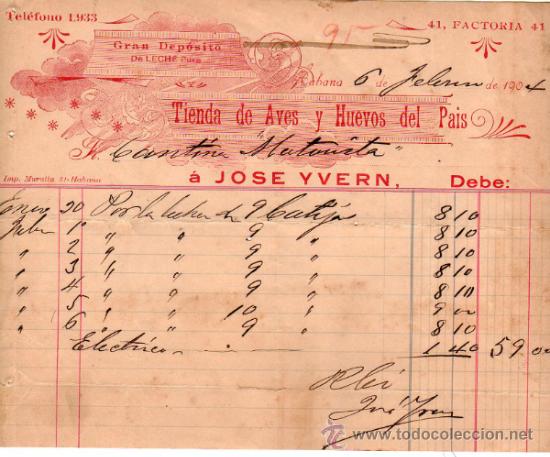 Teléfono 1.933
95
41, FACTORIA 41
Gran Depósito
De LECHE Pura
Habana 6 de Febrero de 1904
Tienda de Aves y Huevos del Pais
Sr. Cantina "Maternita"
Imp. Muralla 31-Habana
á JOSE YVERN, Debe:
Enero 30 Por la leche de 9 Botijas 8 10
Febro 1° " " 9 " 8 10
" 2 " " 9 " 8 10
" 3 " " 9 " 8 10
" 4 " " 9 " 8 10
" 5 " " 10 " 9 00
" 6 " " 9 " 8 10
Electrico 1 40 59 00
Rbi
José Yvern
POSTAL
www.todocoleccion.net